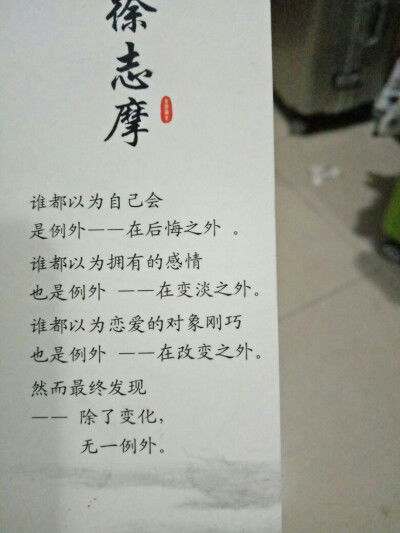 徐志摩
谁都以为自己会
是例外——在后悔之外 。
谁都以为拥有的感情
也是例外 ——在变淡之外。
谁都以为恋爱的对象刚巧
也是例外 ——在改变之外。
然而最终发现
—— 除了变化,
无一例外。